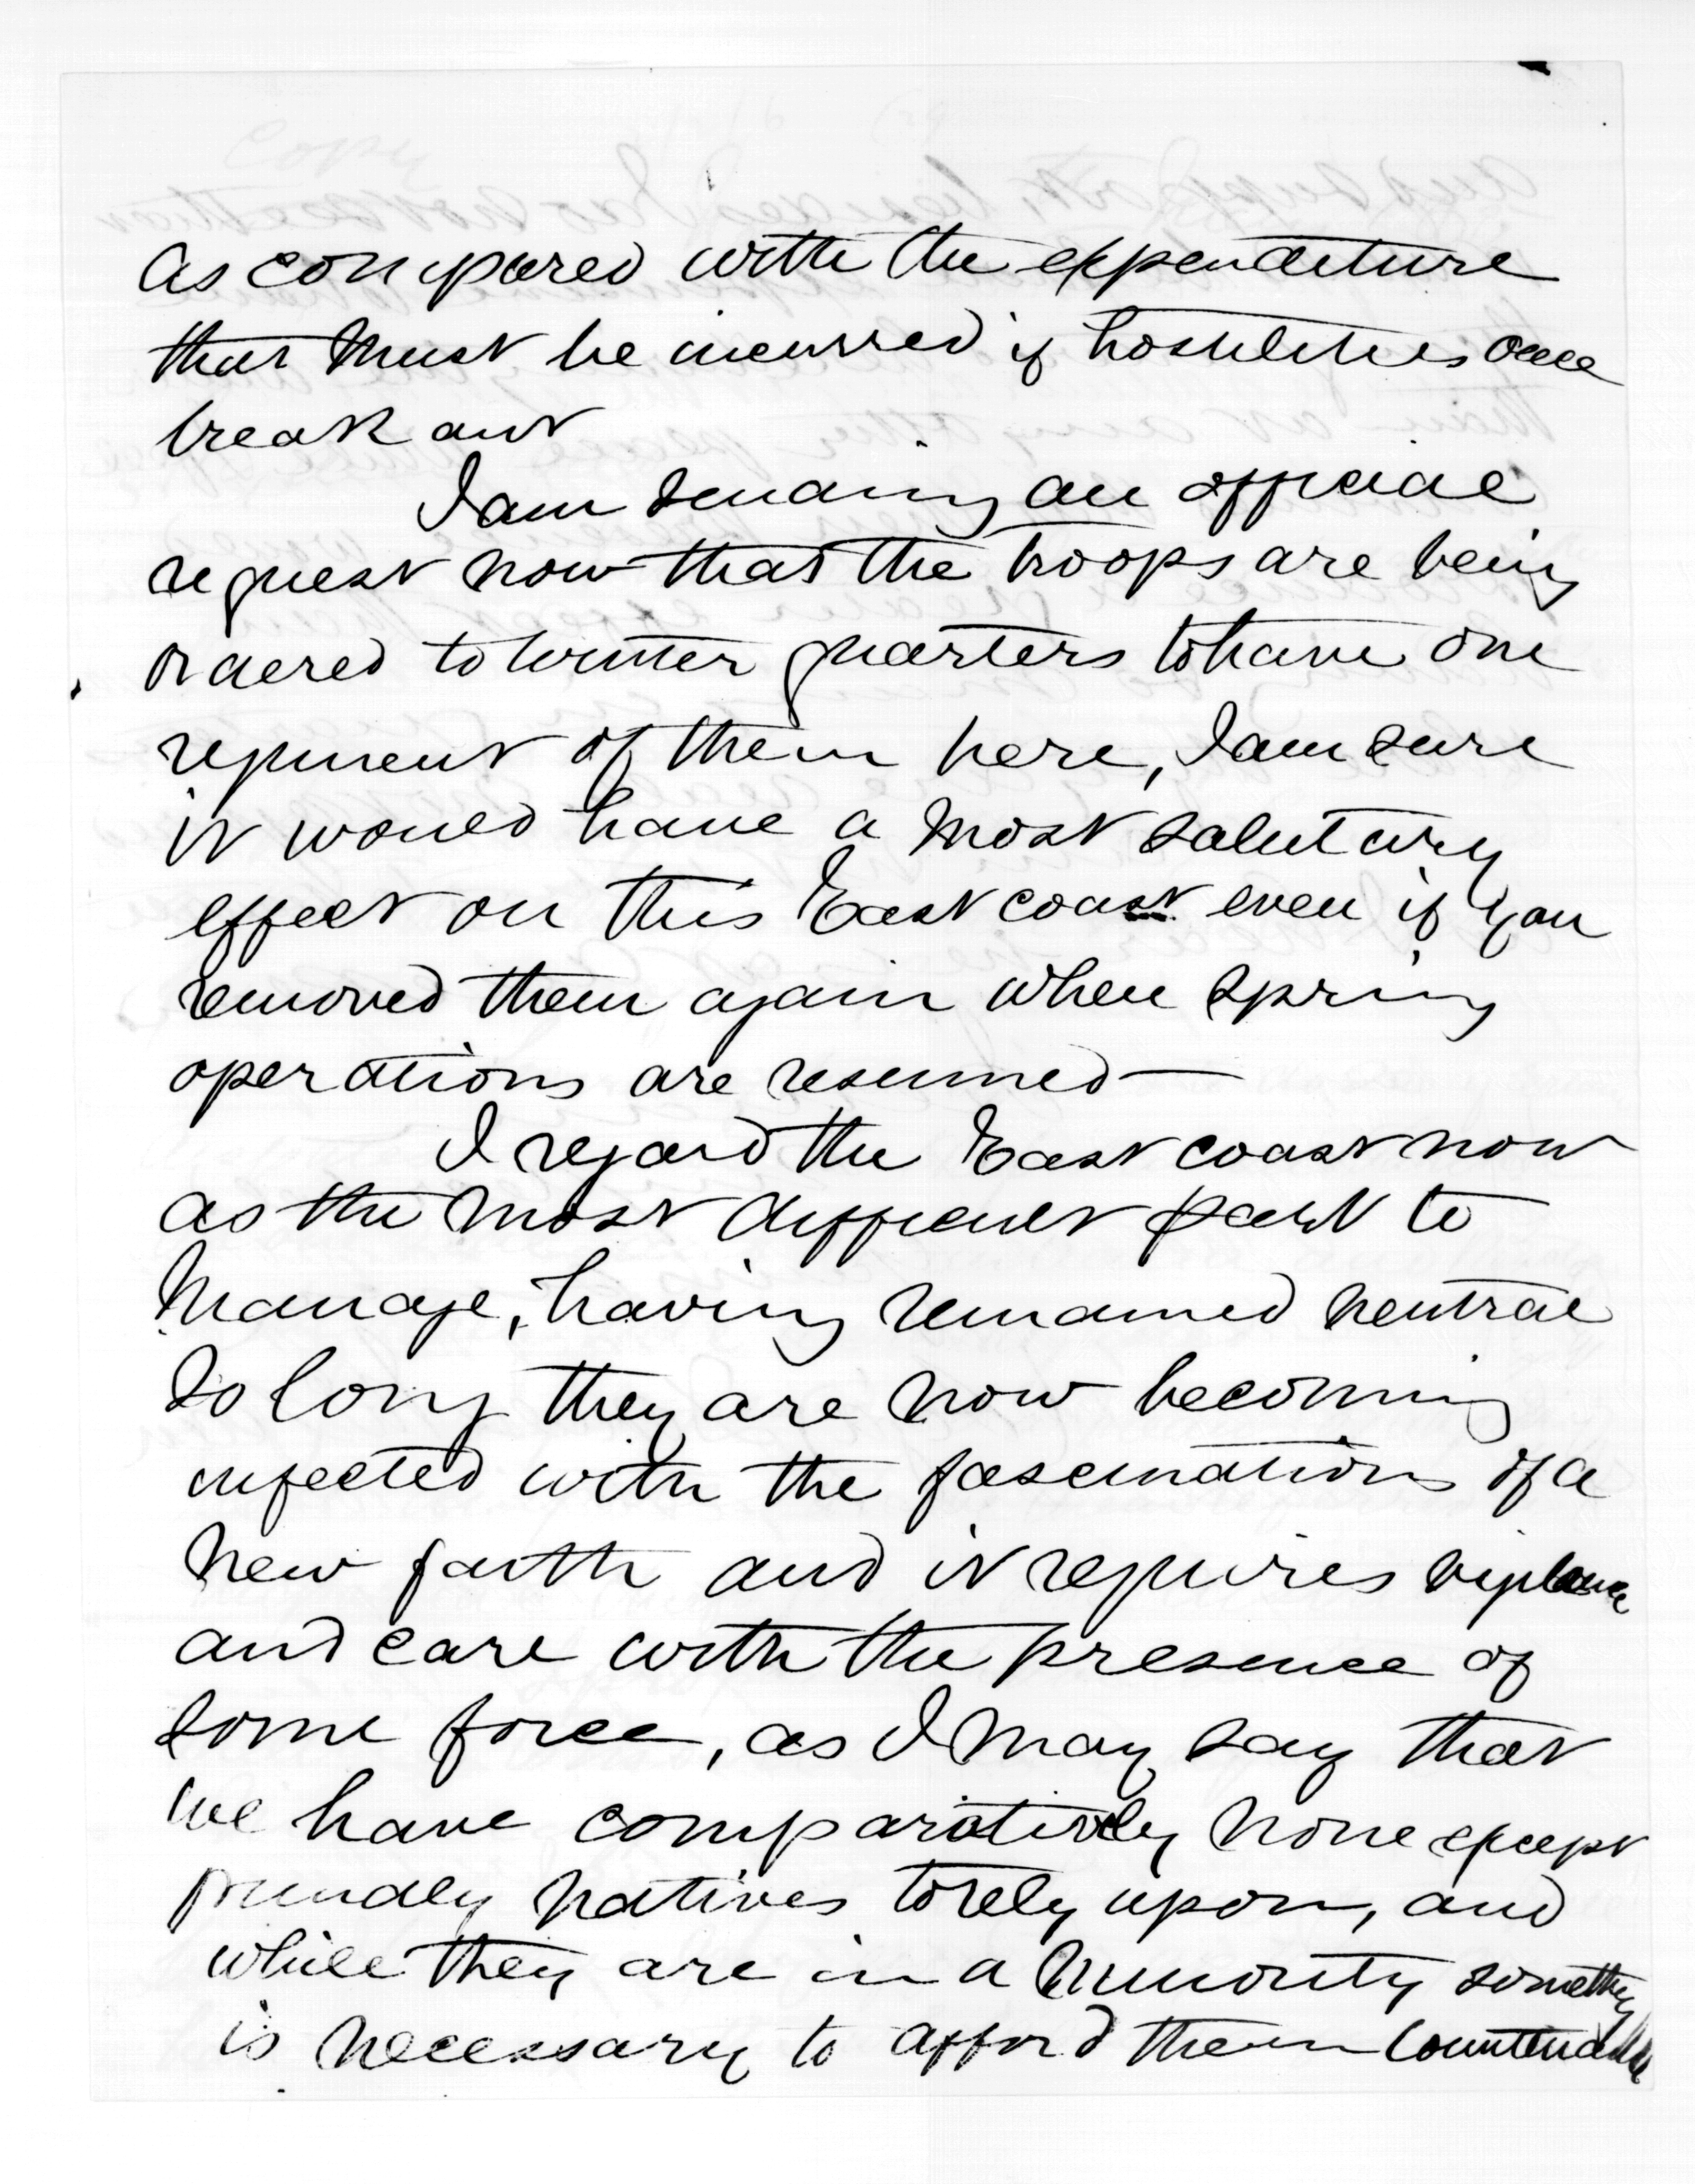 as compared with the expenditure
that must be incurred if hostilities once
break out
I am sending an official
request now that the troops are being
ordered to winter quarters to have one
regiment of them here, I am sure
it would have a most salutary
effect on this East coast even if you
removed them again when spring
operations are resumed —
I regard the East coast now
as the most difficult part to
manage, having remained neutral
so long they are now becoming
infected with the fascinations of a
new faith and it requires vigilance
and care with the presence of
some force, as I may say that
we have comparatively none except
friendly natives to rely upon, and
while they are in a minority something
is necessary to afford them countenance